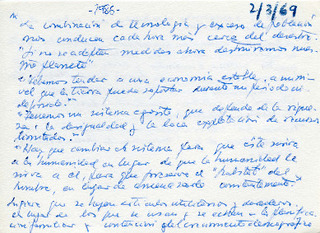 2/3/69
"La combinación de tecnología y exceso de población
nos conducen cada hora más cerca del desastre.
"Si no se adoptan medidas ahora destruiremos nues-
tro planeta"
"Debemos tender a una economía estable, a un ni-
vel que la tierra pueda soportar durante un período in-
definido".
"Tenemos un sistema egoísta, que depende de la rique-
za, la desigualdad y la loca explotación de recursos
limitados."
"Hay que cambiar el sistema para que éste sirva
a la humanidad en lugar de que la humanidad le
sirva a él, para que preserve el "habitat" del
hombre, en lugar de amenazarlo constantemente."
Sugiere que se hagan artículos utilitarios y duraderos
en lugar de los que se usan y se echan a la
y contención del crecimiento demográfico